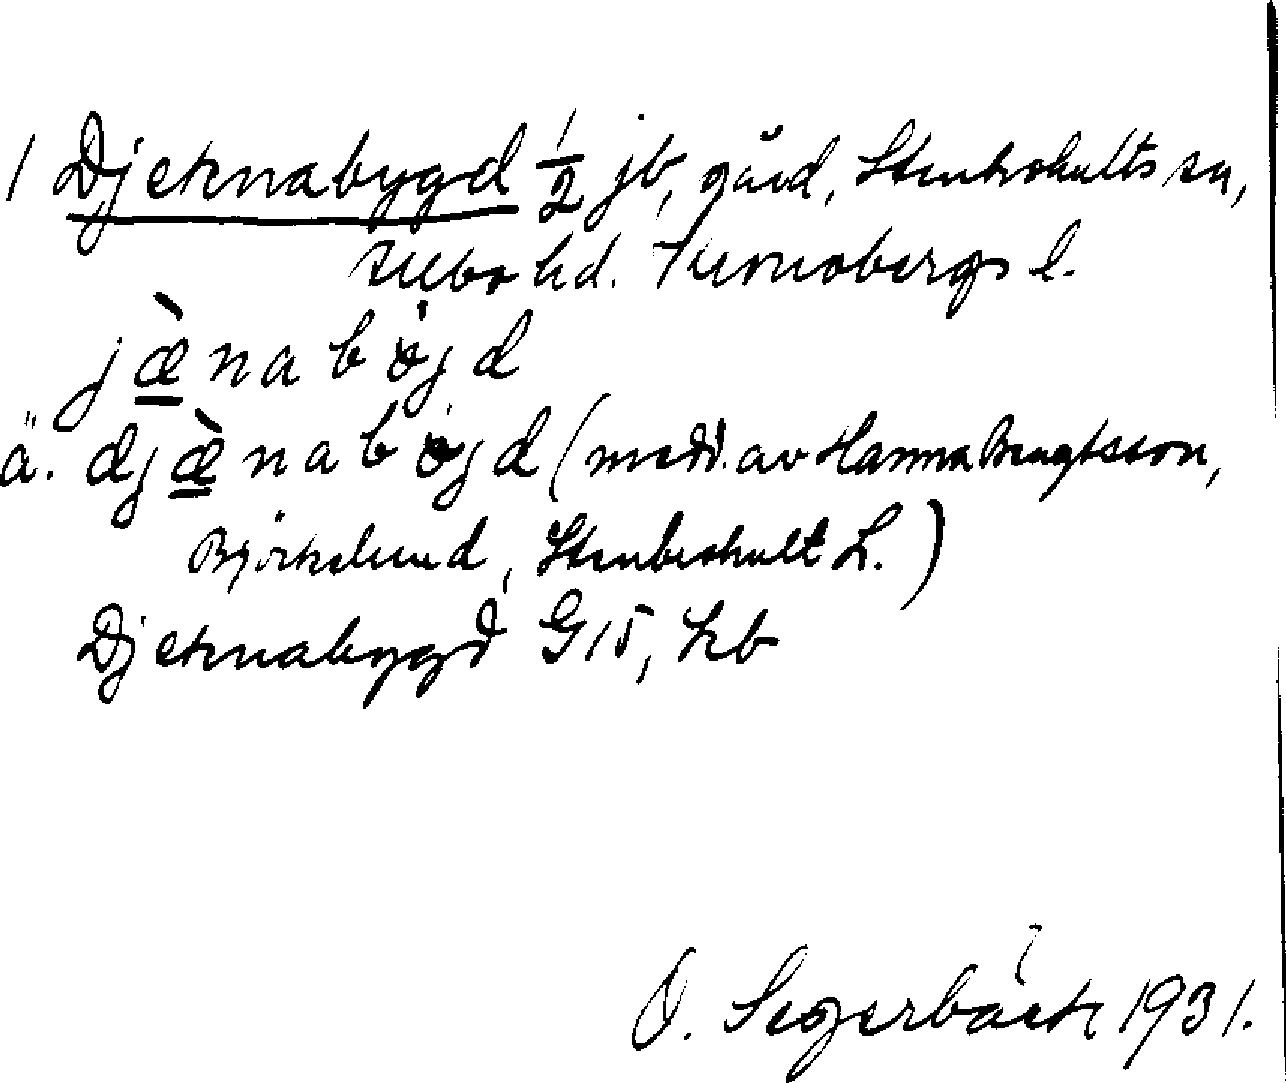 1 Djeknabygd 1/2 jb, gård, Stenbrohults sn,
Allbo hd. Kronobergs l.
jæ̀nabȯjd
ä. djæ̀nabȯjd (medd. av Hanna Bengtsson,
Björkelund, Stenbrohult L.)
Djeknabygd G15, kb
O. Segerbäck 1931.